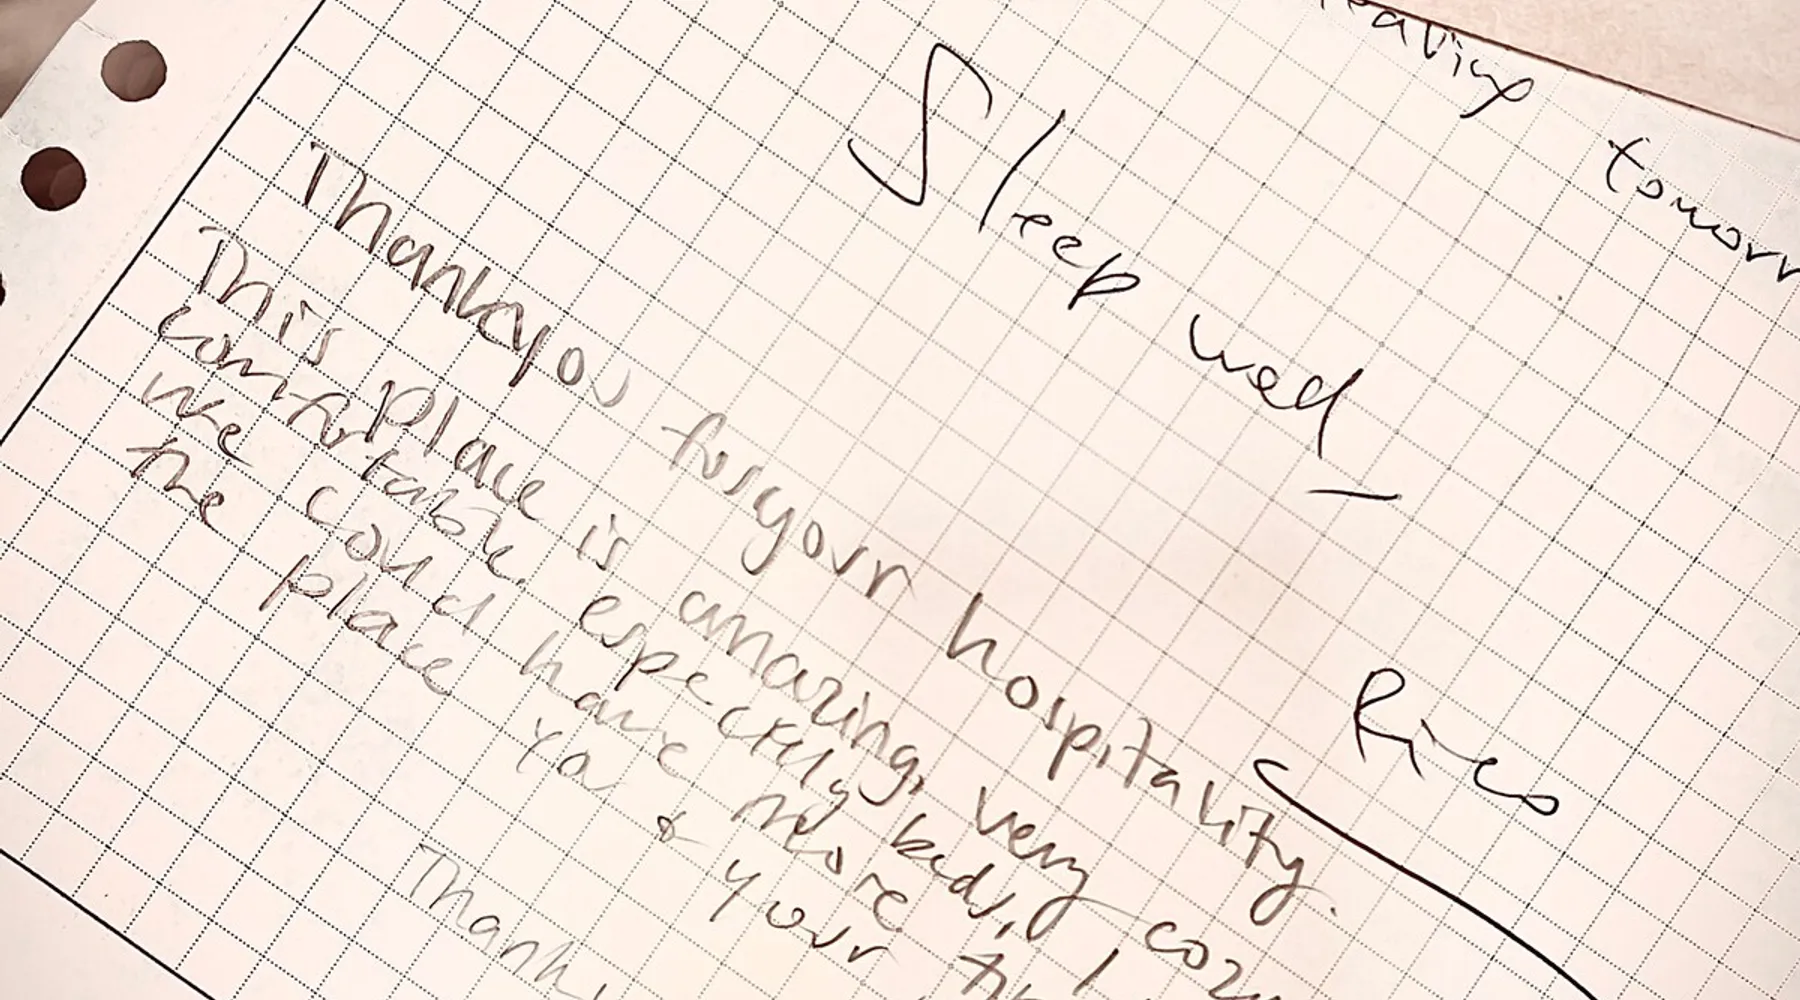 tomorr
Sleep
Rico
Thankyou for your hospitality.
This place is amazing, very cozy
comfortable. especially beds, I
we could have more
the place & your
Thank